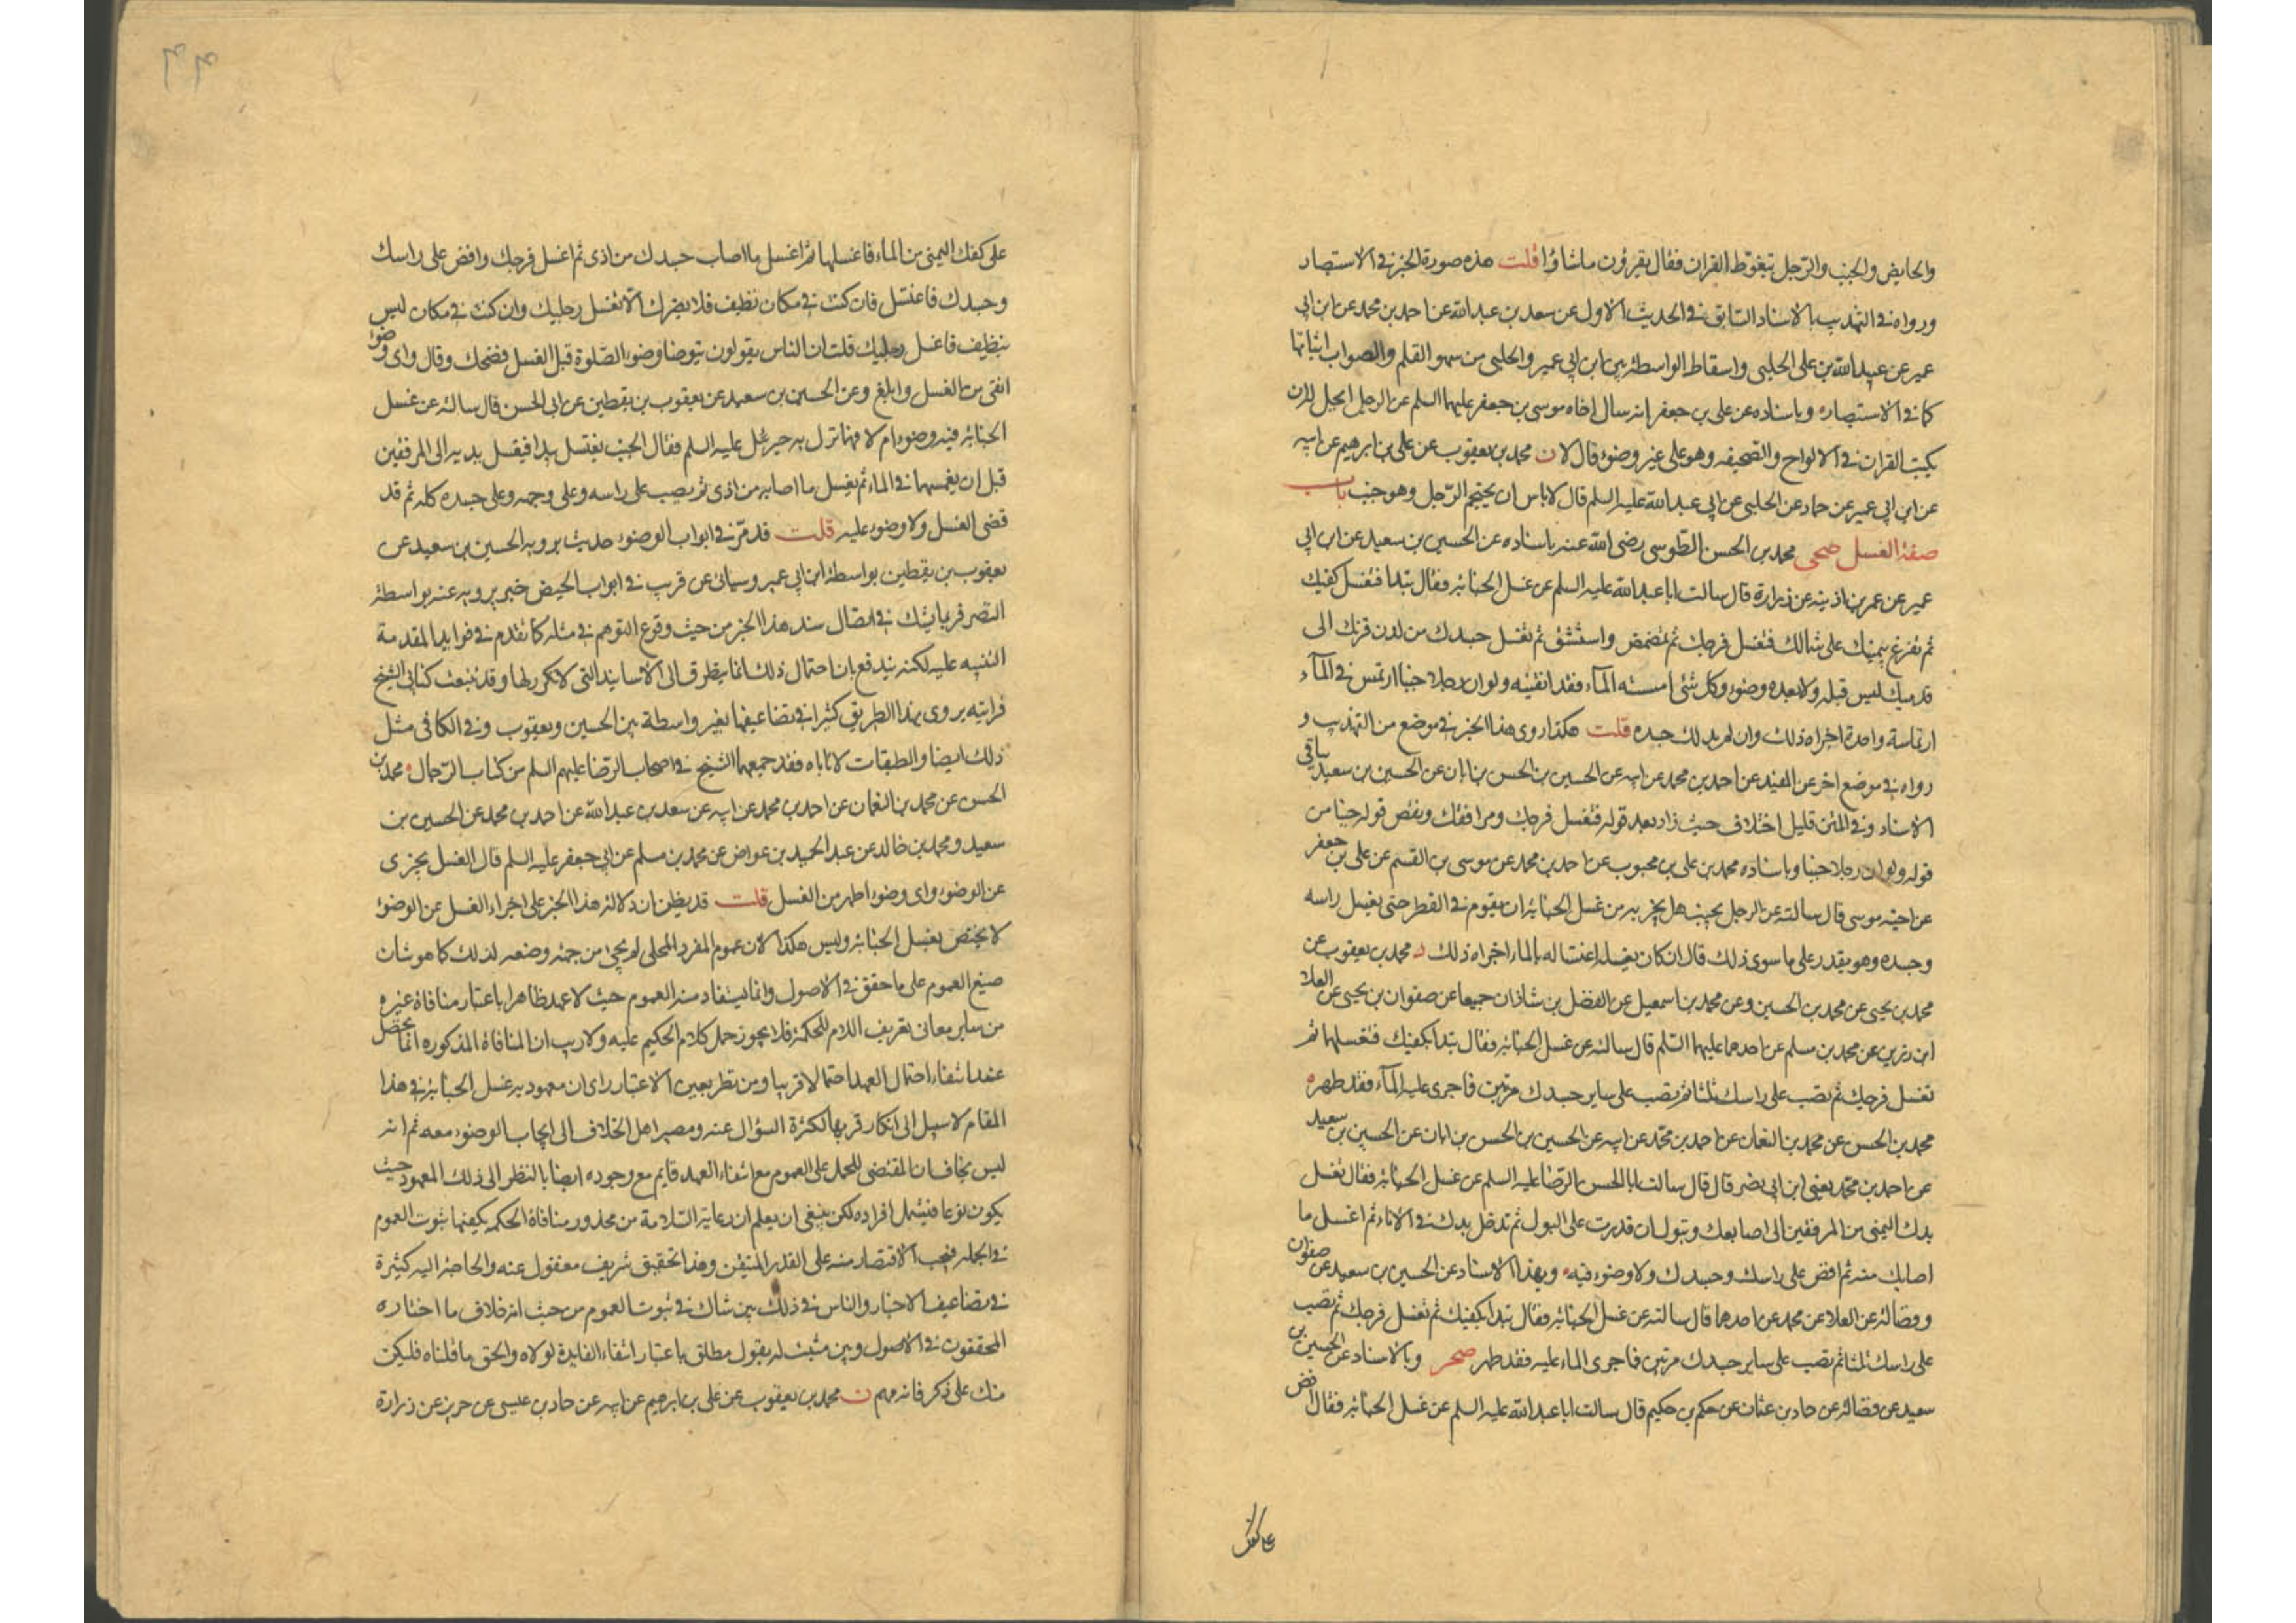 والحايض والجنب والرّجل يتغوّط القران فقال يقرؤن ما شاؤا قلت هذه صورة الخبر في الاستبصار
ورواه في التهذيب بالاسناد السابق في الحديث الاول عن سعد بن عبد الله عن احمد بن محمد عن ابن ابي
عمير عن عبيد الله بن علي الحلبي واسقاط الواسطة بين ابن ابي عمير والحلبي من سهو القلم والصواب اثباتها
كما في الاستبصار وباسناده عن علي بن جعفر انه سال اخاه موسى بن جعفر عليهما السلم عن الرجل ايحل له ان
يكتب القران في الالواح والصحيفه وهو على غير وضوء قال لا ن محمد بن يعقوب عن علي بن ابرهيم عن ابيه
عن ابن ابي عمير عن حماد عن الحلبي عن ابي عبد الله عليه السلم قال لا باس ان يحتجم الرّجل وهو جنب باب
صفة الغسل صحى محمد بن الحسن الطوسى رضى الله عنه باسناده عن الحسين بن سعيد عن ابن ابي
عمير عن عمر بن اذينه عن زرارة قال سالت ابا عبد الله عليه السلم عن غسل الجنابة فقال تبدا فتغسل كفيك
ثم تفرغ بيمينك على شمالك فتغسل فرجك ثم تمضمض واستنشق ثم تغسل جسدك من لدن قرنك الى
قدميك ليس قبله ولا بعده وضوء وكل شئ امسسته المآء فقد انقيته ولو ان رجلا جنبا ارتمس في المآء
ارتماسة واحدة اجزاه ذلك وان لم يدلك جسده قلت هكذا روى هذا الخبر في موضع من التهذيب و
رواه في موضع اخر عن المفيد عن احمد بن محمد عن ابيه عن الحسين بن الحسن بن ابان عن الحسين بن سعيد بباقى
الاسناد وفي المتن قليل اختلاف حيث زاد بعد قوله فتغسل فرجك ومرافقك ونقص قوله جنبا من
قوله ولو ان رجلا جنبا وباسناده محمد بن علي بن محبوب عن احمد بن محمد عن موسى بن القسم عن علي بن جعفر
عن اخيه موسى قال سالته عن الرجل يجنب هل يجزيه من غسل الجنابة ان يقوم في القطر حتى يغسل راسه
وجسده وهو يقدر على ما سوى ذلك قال ان كان يغسله اغتساله بالماء اجزاه ذلك محمد بن يعقوب عن
محمد بن يحيى عن محمد بن الحسين وعن محمد بن اسمعيل عن الفضل بن شاذان جميعا عن صفوان بن يحيى عن العلا
ابن رزين عن محمد بن مسلم عن احدهما عليهما السلم قال سالته عن غسل الجنابة فقال تبدا بكفيك فتغسلهما ثم
تغسل فرجك ثم تصب على راسك ثلثا ثم تصب على ساير جسدك مرتين فما جرى عليه المآء فقد طهر
محمد بن الحسن عن محمد بن النعمان عن احمد بن محمد عن ابيه عن الحسين بن الحسن بن ابان عن الحسين بن سعيد
عن احمد بن محمد يعنى ابن ابي نصر قال قال سالت ابا الحسن الرضا عليه السلم عن غسل الجنابة فقال تغسل
يدك اليمنى من المرفقين الى اصابعك وتبول ان قدرت على البول ثم تدخل يدك في الاناء ثم اغسل ما
اصابك منه ثم افض على راسك وجسدك ولا وضوء فيه وبهذا الاسناد عن الحسين بن سعيد عن صفوان
وفضالة عن العلا عن محمد عن احدهما قال سالته عن غسل الجنابة فقال تبدا بكفيك ثم تغسل فرجك ثم تصب
على راسك ثلثا ثم تصب على ساير جسدك مرتين فما جرى الماء عليه فقد طهر صحر وبالاسناد عن الحسين بن
سعيد عن فضالة عن حماد بن عثمان عن حكم بن حكيم قال سالت ابا عبد الله عليه السلم عن غسل الجنابة فقال افض
على كفك
على كفك اليمنى من الماء فاغسلها ثم اغسل ما اصاب جسدك من اذى ثم اغسل فرجك وافض على راسك
وجسدك فاغتسل فان كنت في مكان نظيف فلا يضرك الا تغسل رجليك وان كنت في مكان ليس
بنظيف فاغسل رجليك قلت ان الناس يقولون يتوضا وضوء الصّلوة قبل الغسل فضحك وقال واى وضوء
انقى من الغسل وابلغ وعن الحسين بن سعيد عن يعقوب بن يقطين عن ابي الحسن قال سالته عن غسل
الجنابة فيه وضوء ام لا فيما نزل به جبرئيل عليه السلم فقال الجنب يغتسل يبدا فيغسل يديه الى المرفقين
قبل ان يغمسهما في الماء ثم يغسل ما اصابه من اذى ثم يصب على راسه وعلى وجهه وعلى جسده كله ثم قد
قضى الغسل ولا وضوء عليه قلت قد مرّ في ابواب الوضوء حديث يرويه الحسين بن سعيد عن
يعقوب بن يقطين بواسطة ابن ابي عمير وسياتى عن قريب في ابواب الحيض خبر يرويه عنه بواسطة
النضر فربما يشك في اتصال سند هذا الخبر من حيث وقوع التوهم في مثله كما تقدم في فوايد المقدمة
التنبيه عليه لكنه يندفع بان احتمال ذلك انما يتطرق الى الاسانيد التى لا تكرر لها وقد تتبعت كتابى الشيخ
فرايته يروى بهذا الطريق كثيرا في تضاعيفهما بغير واسطة بين الحسين ويعقوب وفي الكافى مثل
ذلك ايضا والطبقات لا تاباه فقد جمعهما الشيخ في اصحاب الرّضا عليهم السلم من كتاب الرّجال محمد بن
الحسن عن محمد بن النعمان عن احمد بن محمد عن ابيه عن سعد بن عبد الله عن احمد بن محمد عن الحسين بن
سعيد ومحمد بن خالد عن عبد الحميد بن عواض عن محمد بن مسلم عن ابي جعفر عليه السلم قال الغسل يجزى
عن الوضوء واى وضوء اطهر من الغسل قلت قد يظن ان دلالة هذا الخبر على اجزاء الغسل عن الوضوء
لا يختص بغسل الجنابة وليس هكذا لان عموم المفرد المحلى لم يجئ من جهة وضعه لذلك كما هو شان
صيغ العموم على ما حقق في الاصول وانما يستفاد منه العموم حيث لا عهد ظاهرا باعتبار منافاة غيره
من ساير معانى تعريف اللام للحكمة فلا يجوز حمل كلام الحكيم عليه ولا ريب ان المنافاة المذكوره انما تحصل
عند انتفاء احتمال العهد احتمالا قريبا ومن نظر بعين الاعتبار راى ان معهوديه غسل الجنابة في هذا
المقام لا سبيل الى انكار قربها لكثرة السؤال عنه ومصير اهل الخلاف الى ايجاب الوضوء معه ثم انه
ليس بخاف ان المقتضى للحمل على العموم مع انتفاء العهد قايم مع وجوده ايضا بالنظر الى ذلك المعهود حيث
يكون نوعا فيشمل افراده لكن ينبغى ان يعلم ان رعاية السّلامة من محذور منافاة الحكمه يكفيها ثبوت العموم
في الجمله فيجب الاقتصار منه على القدر المتيقن وهذا تحقيق شريف مغفول عنه والحاجة اليه كثيرة
في تضاعيف الاخبار والناس في ذلك بين شاك في ثبوت العموم من حيث انه خلاف ما اختاره
المحققون في الاصول وبين مثبت له بقول مطلق باعتبار انتفاء الفايدة لولاه والحق ما قلناه فليكن
منك على ذكر فانه مهم ن محمد بن يعقوب عن علي بن ابرهيم عن ابيه عن حماد بن عيسى عن حريز عن زرارة